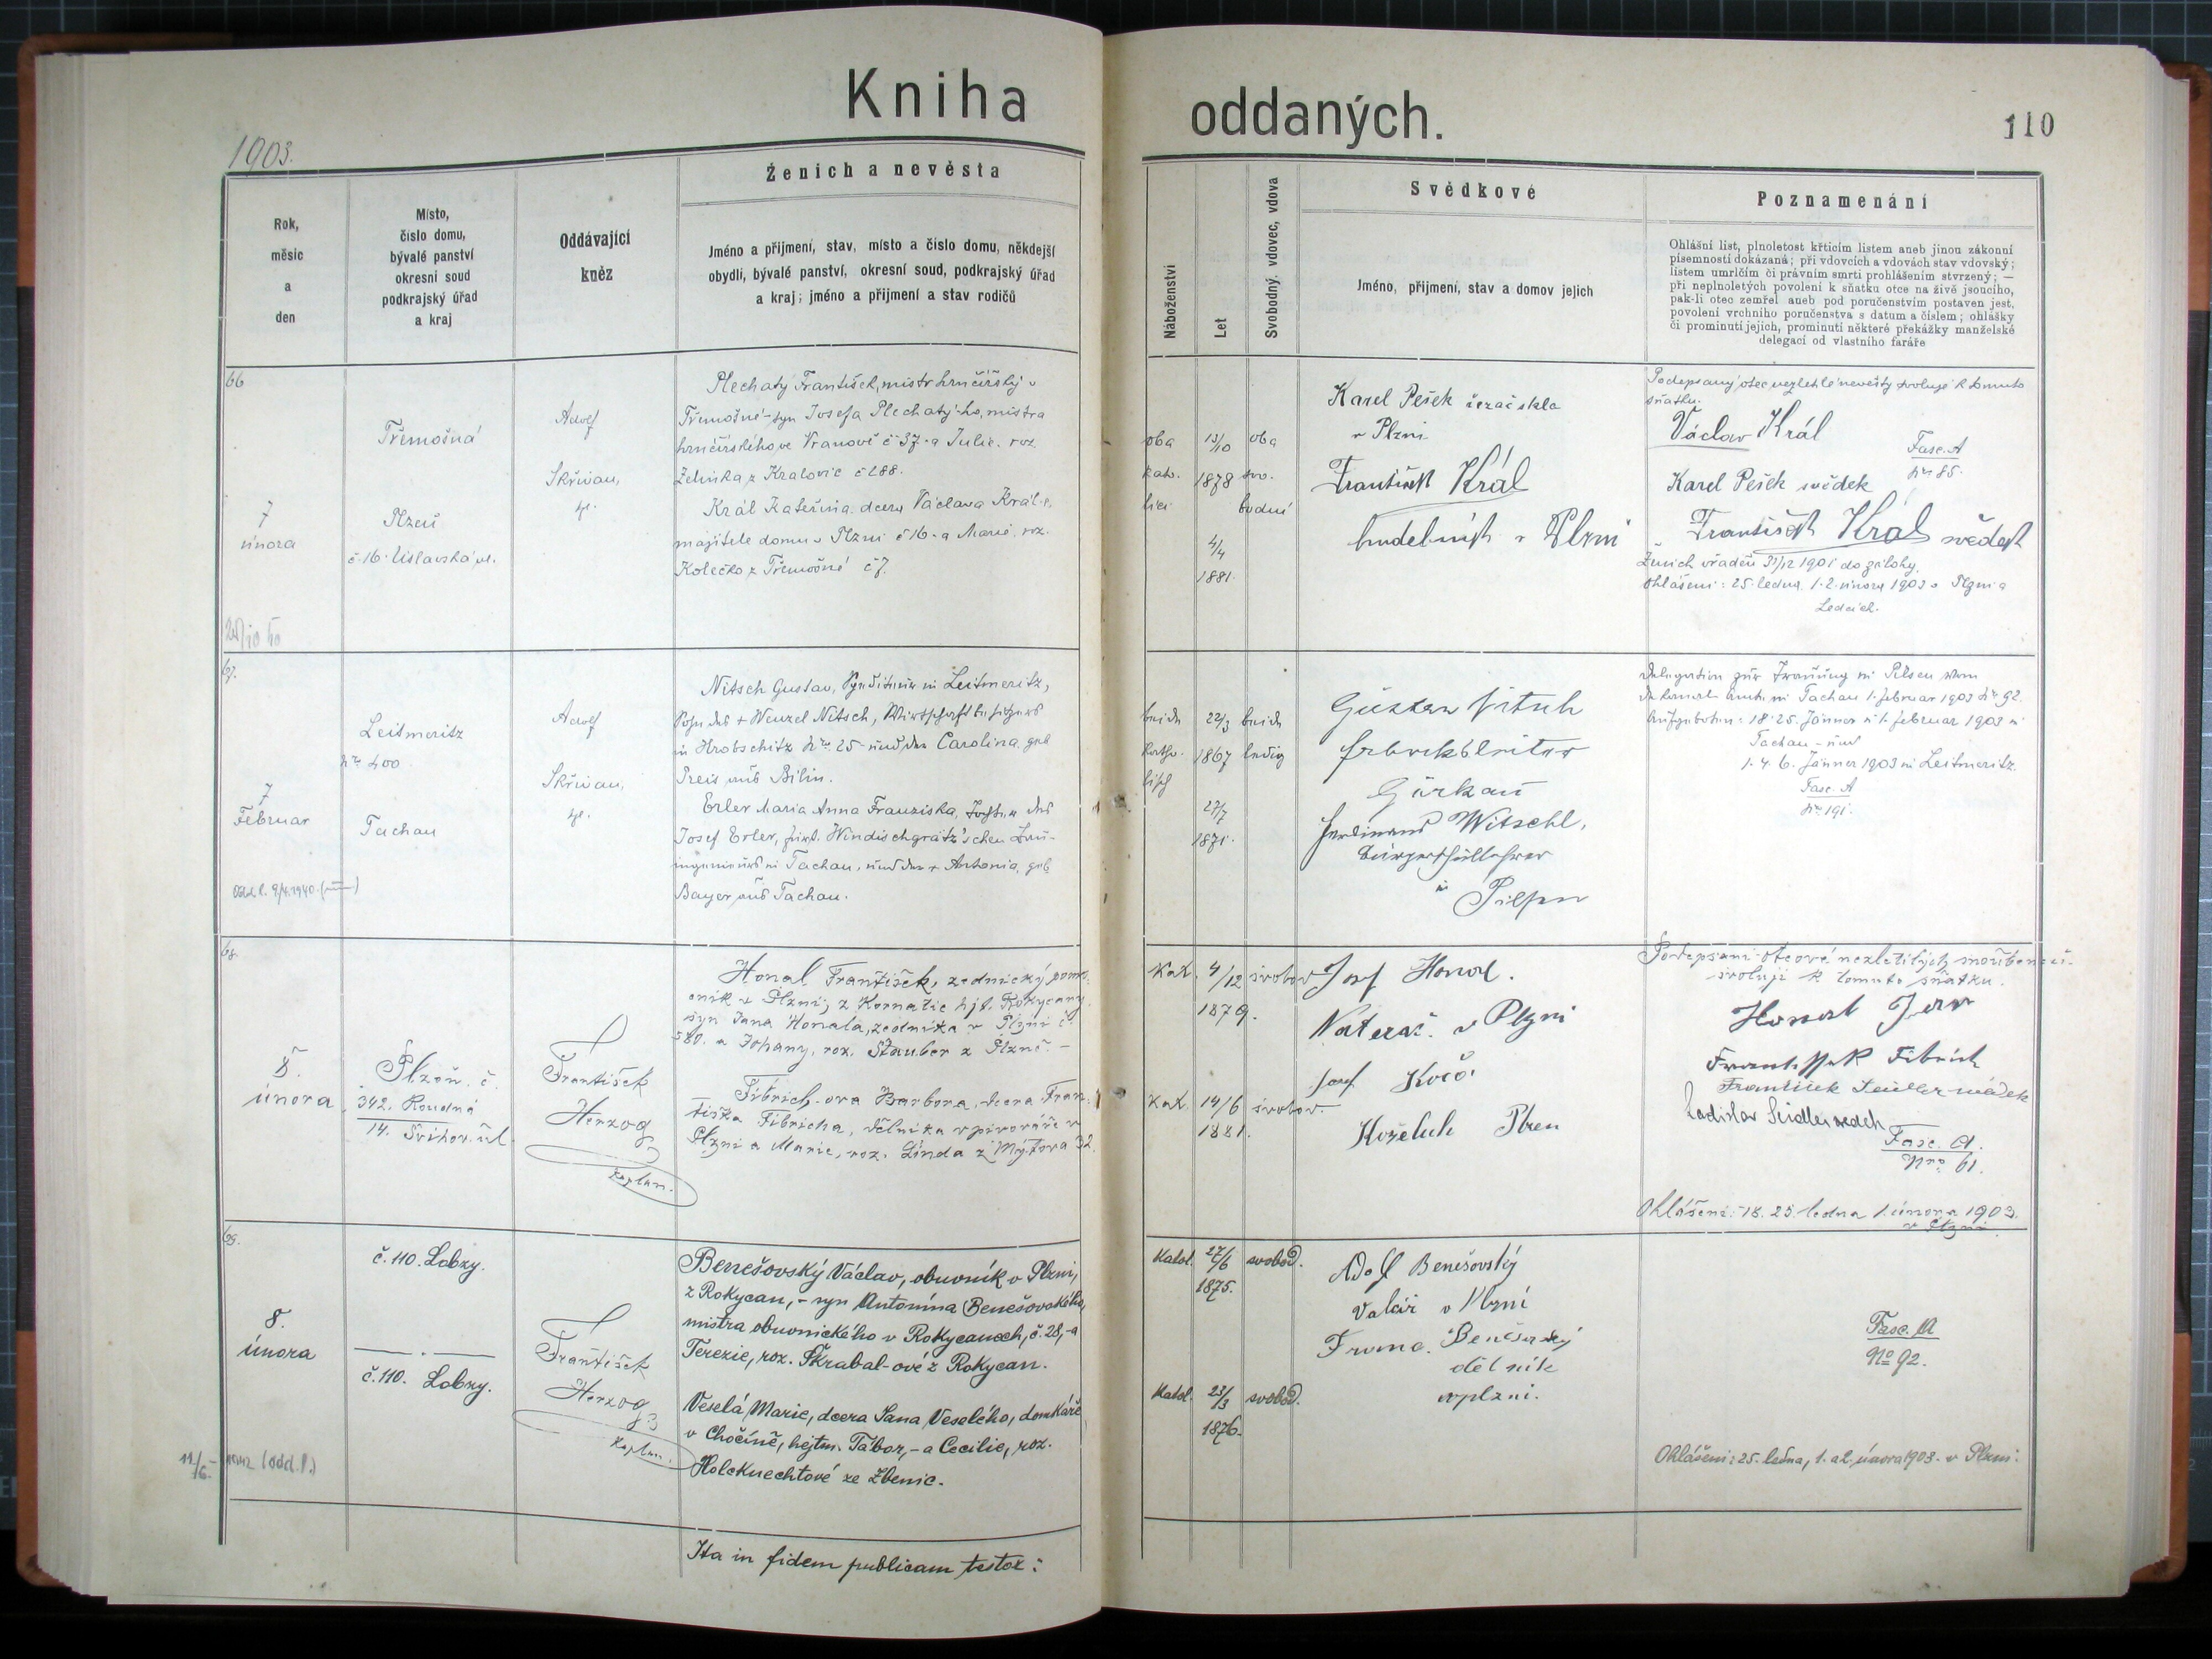 Kniha oddaných.
110
1903.
Rok,
měsíc
a
den
Místo,
číslo domu,
bývalé panství
okresní soud
podkrajský úřad
a kraj
Oddávající
kněz
Ženich a nevěsta
Jméno a přijmení, stav, místo a číslo domu, někdejší
obydlí, bývalé panství, okresní soud, podkrajský úřad
a kraj; jméno a přijmení a stav rodičů
Náboženství
Let
Svobodný, vdovec, vdova
Svědkové
Jméno, přijmení, stav a domov jejich
Poznamenání
Ohlášní list, plnoletost křticím listem aneb jinou zákonní
písemností dokázaná; při vdovcích a vdovách stav vdovský;
listem umrlčím či právním smrti prohlášením stvrzený; —
při neplnoletých povolení k sňatku otce na živě jsoucího,
pak-li otec zemřel aneb pod poručenstvím postaven jest,
povolení vrchního poručenstva s datum a číslem; ohlášky
či prominutí jejich, prominutí některé překážky manželské
delegací od vlastního faráře
66
7
února
Třemošná
Plzeň
č. 16. Úslavská ul.
Adolf
Skřivan,
Plechatý František, mistr hrnčířský v
Třemošné - syn Josefa Plechatý-ho, mistra
hrnčířského, ve Vranově č 37. a Julie. roz
Zelinka z Kralovic č 288.
Král Kateřina. dcera Václava Král-a,
majitele domu v Plzni č 16. a Marie. roz.
Kolečko z Třemošné č 7.
oba
kato.
lici
13/10
1878
4/4
1881.
oba
svo.
bodni
Karel Pešek řezač skla
v Plzni
František Král
hudebník v Plzni
Podepsaný otec nezletilé nevěsty svoluje k tomuto
sňatku.
Václav Král
Fasc. A
Nro 85.
Karel Pešek svědek
František Král svědek
Ženich vřaděn 31/12 1901 do zálohy.
Ohlášení: 25. ledna, 1. 2. února 1903 v Plzni a
Ledcích.
67.
7
Februar
Leitmeritz
Nro 400
Tachau
Adolf
Skřivan,
Nitsch Gustav, in Leitmeritz,
Sohn des + Wenzel Nitsch, Wirtschaftsbesitzers
in Hrobschitz Nro 25 und der Carolina. geb
Preis aus Bilin.
Erler Maria Anna Franziska, Tochter des
Josef Erler, fürst. Windischgrätz'schen Bau-
ingenieurs in Tachau, und der + Antonia, geb
Bayer aus Tachau.
beide
katho.
lisch
22/3
1867
27/7
1871.
beide
ledig
Gustav Nitsch
Fabriksleiter
Görkau
Ferdinand Witschl,
Bürgerschullehrer
in Pilsen
Delegation zur Trauung in Pilsen vom
Dekanal-Amte in Tachau 1. Februar 1903 Nro 92.
Aufgeboten: 18. 25. Jänner u 1. Februar 1903 in
Tachau - und
1. 4. 6. Jänner 1903 in Leitmeritz.
Fasc. A
Nro 191.
68.
8.
února
Plzeň. č.
342. Roudná
14. Švihov. ul.
František
Herzog
kaplan.
Honal František, zednický pom-
ocník v Plzni, z Kornatic hjt. Rokycany
syn Jana Honala, zedníka v Plzni č.
580. a Johany, roz. Stauber z Plzně. -
Fibrich-ova Barbora, dcera Fran-
tiška Fibricha, dělníka v pivováře v
Plzni a Marie, roz. Linda z Mýtova 32.
Kat.
4/12
1879.
svobod
Kat.
14/6
1881.
svobod.
Josef Honal.
Natěrač. v Plzni
Josef Kočí
Koželuh Plzeň
Podepsaní otcové nezletilých snoubenců.
svolují k tomuto sňatku.
Honal Jan
Frantisek Fibrich
František Seidler svědek
Ladislav Seidler svědek
Fasc. A.
Nro 61.
Ohlášení: 18. 25. ledna 1. února 1903.
v Plzni
69.
8.
února
č. 110. Lobzy.
č. 110. Lobzy.
František
Herzog
kaplan.
Benešovský Václav, obuvník v Plzni,
z Rokycan, - syn Antonína Benešovského,
mistra obuvnického v Rokycanech, č. 28, - a
Terezie, roz. Škrabal-ové z Rokycan.
Veselá Marie, dcera Jana Veselého, domkáře
v Chočíně, hejtm. Tábor, - a Cecilie, roz.
Holcknechtové ze Zbenic.
Katol.
27/6
1875.
svobod.
Katol.
23/3
1876.
svobod.
Adolf Benešovský
Valcíř v Plzni
Benešovský
dělník
v plzni.
Fasc. A
No 92.
Ohlášení: 25. ledna, 1. a 2. února 1903. v Plzni.
Ita in fidem publicam testor: